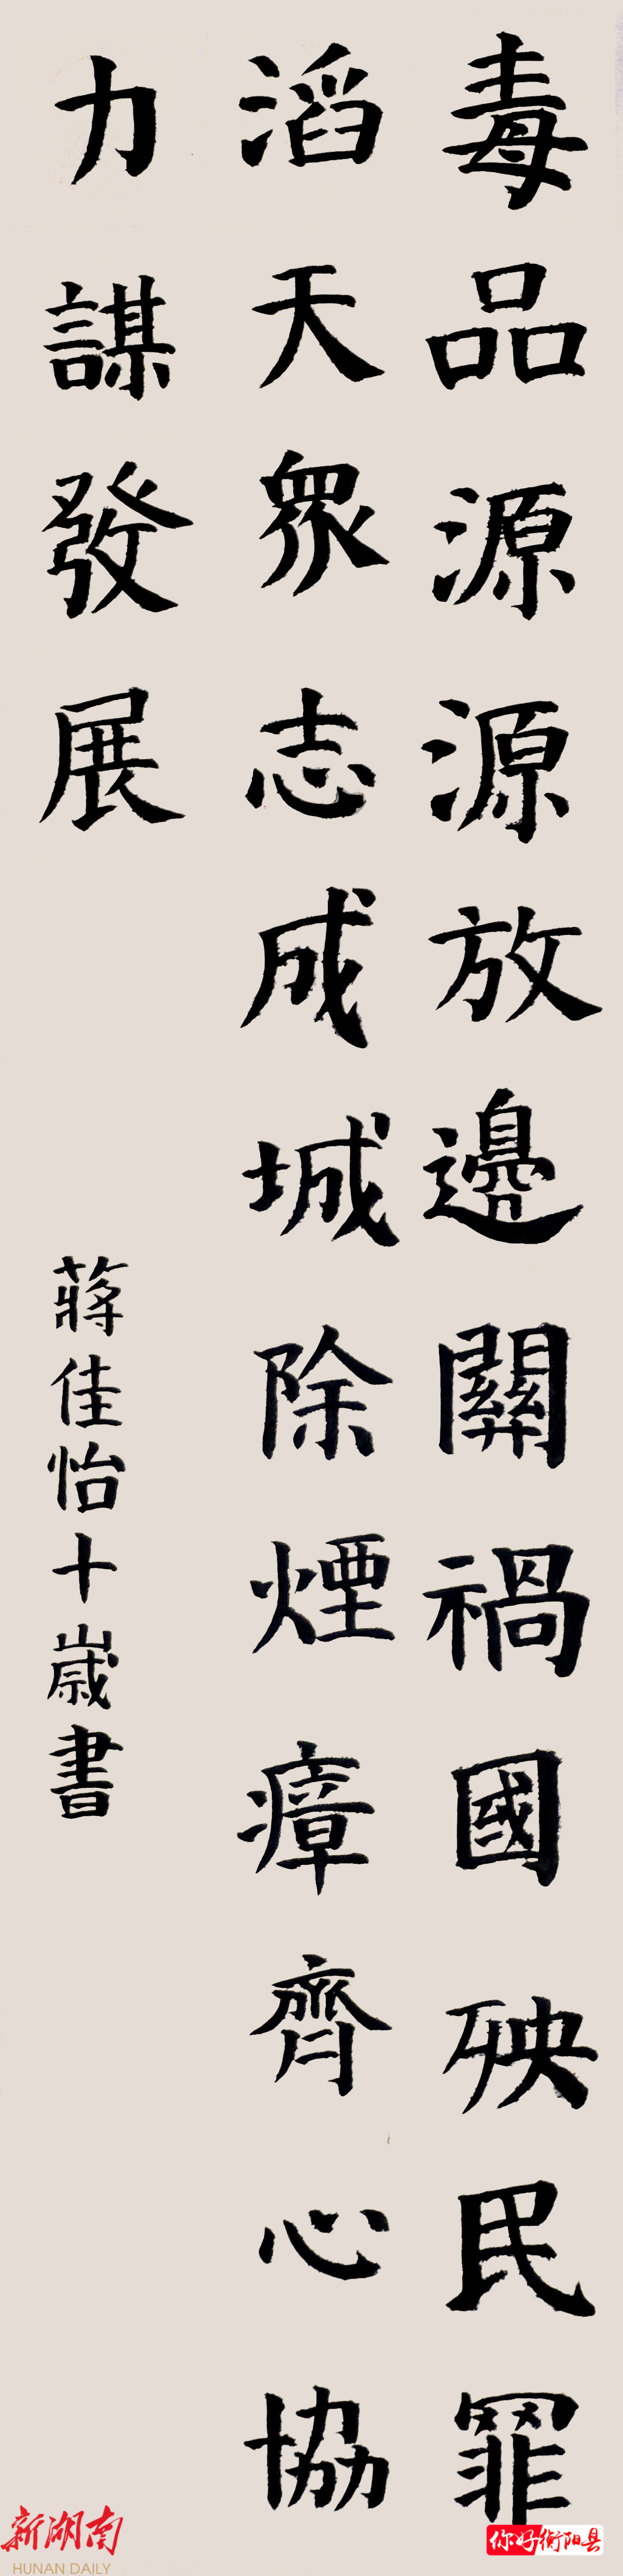 毒品源源放邊關禍國殃民罪
滔天眾志成城除煙瘴齊心協
力謀發展
蔣佳怡十歲書
新湖南
HUNAN DAILY
你好衡阳县